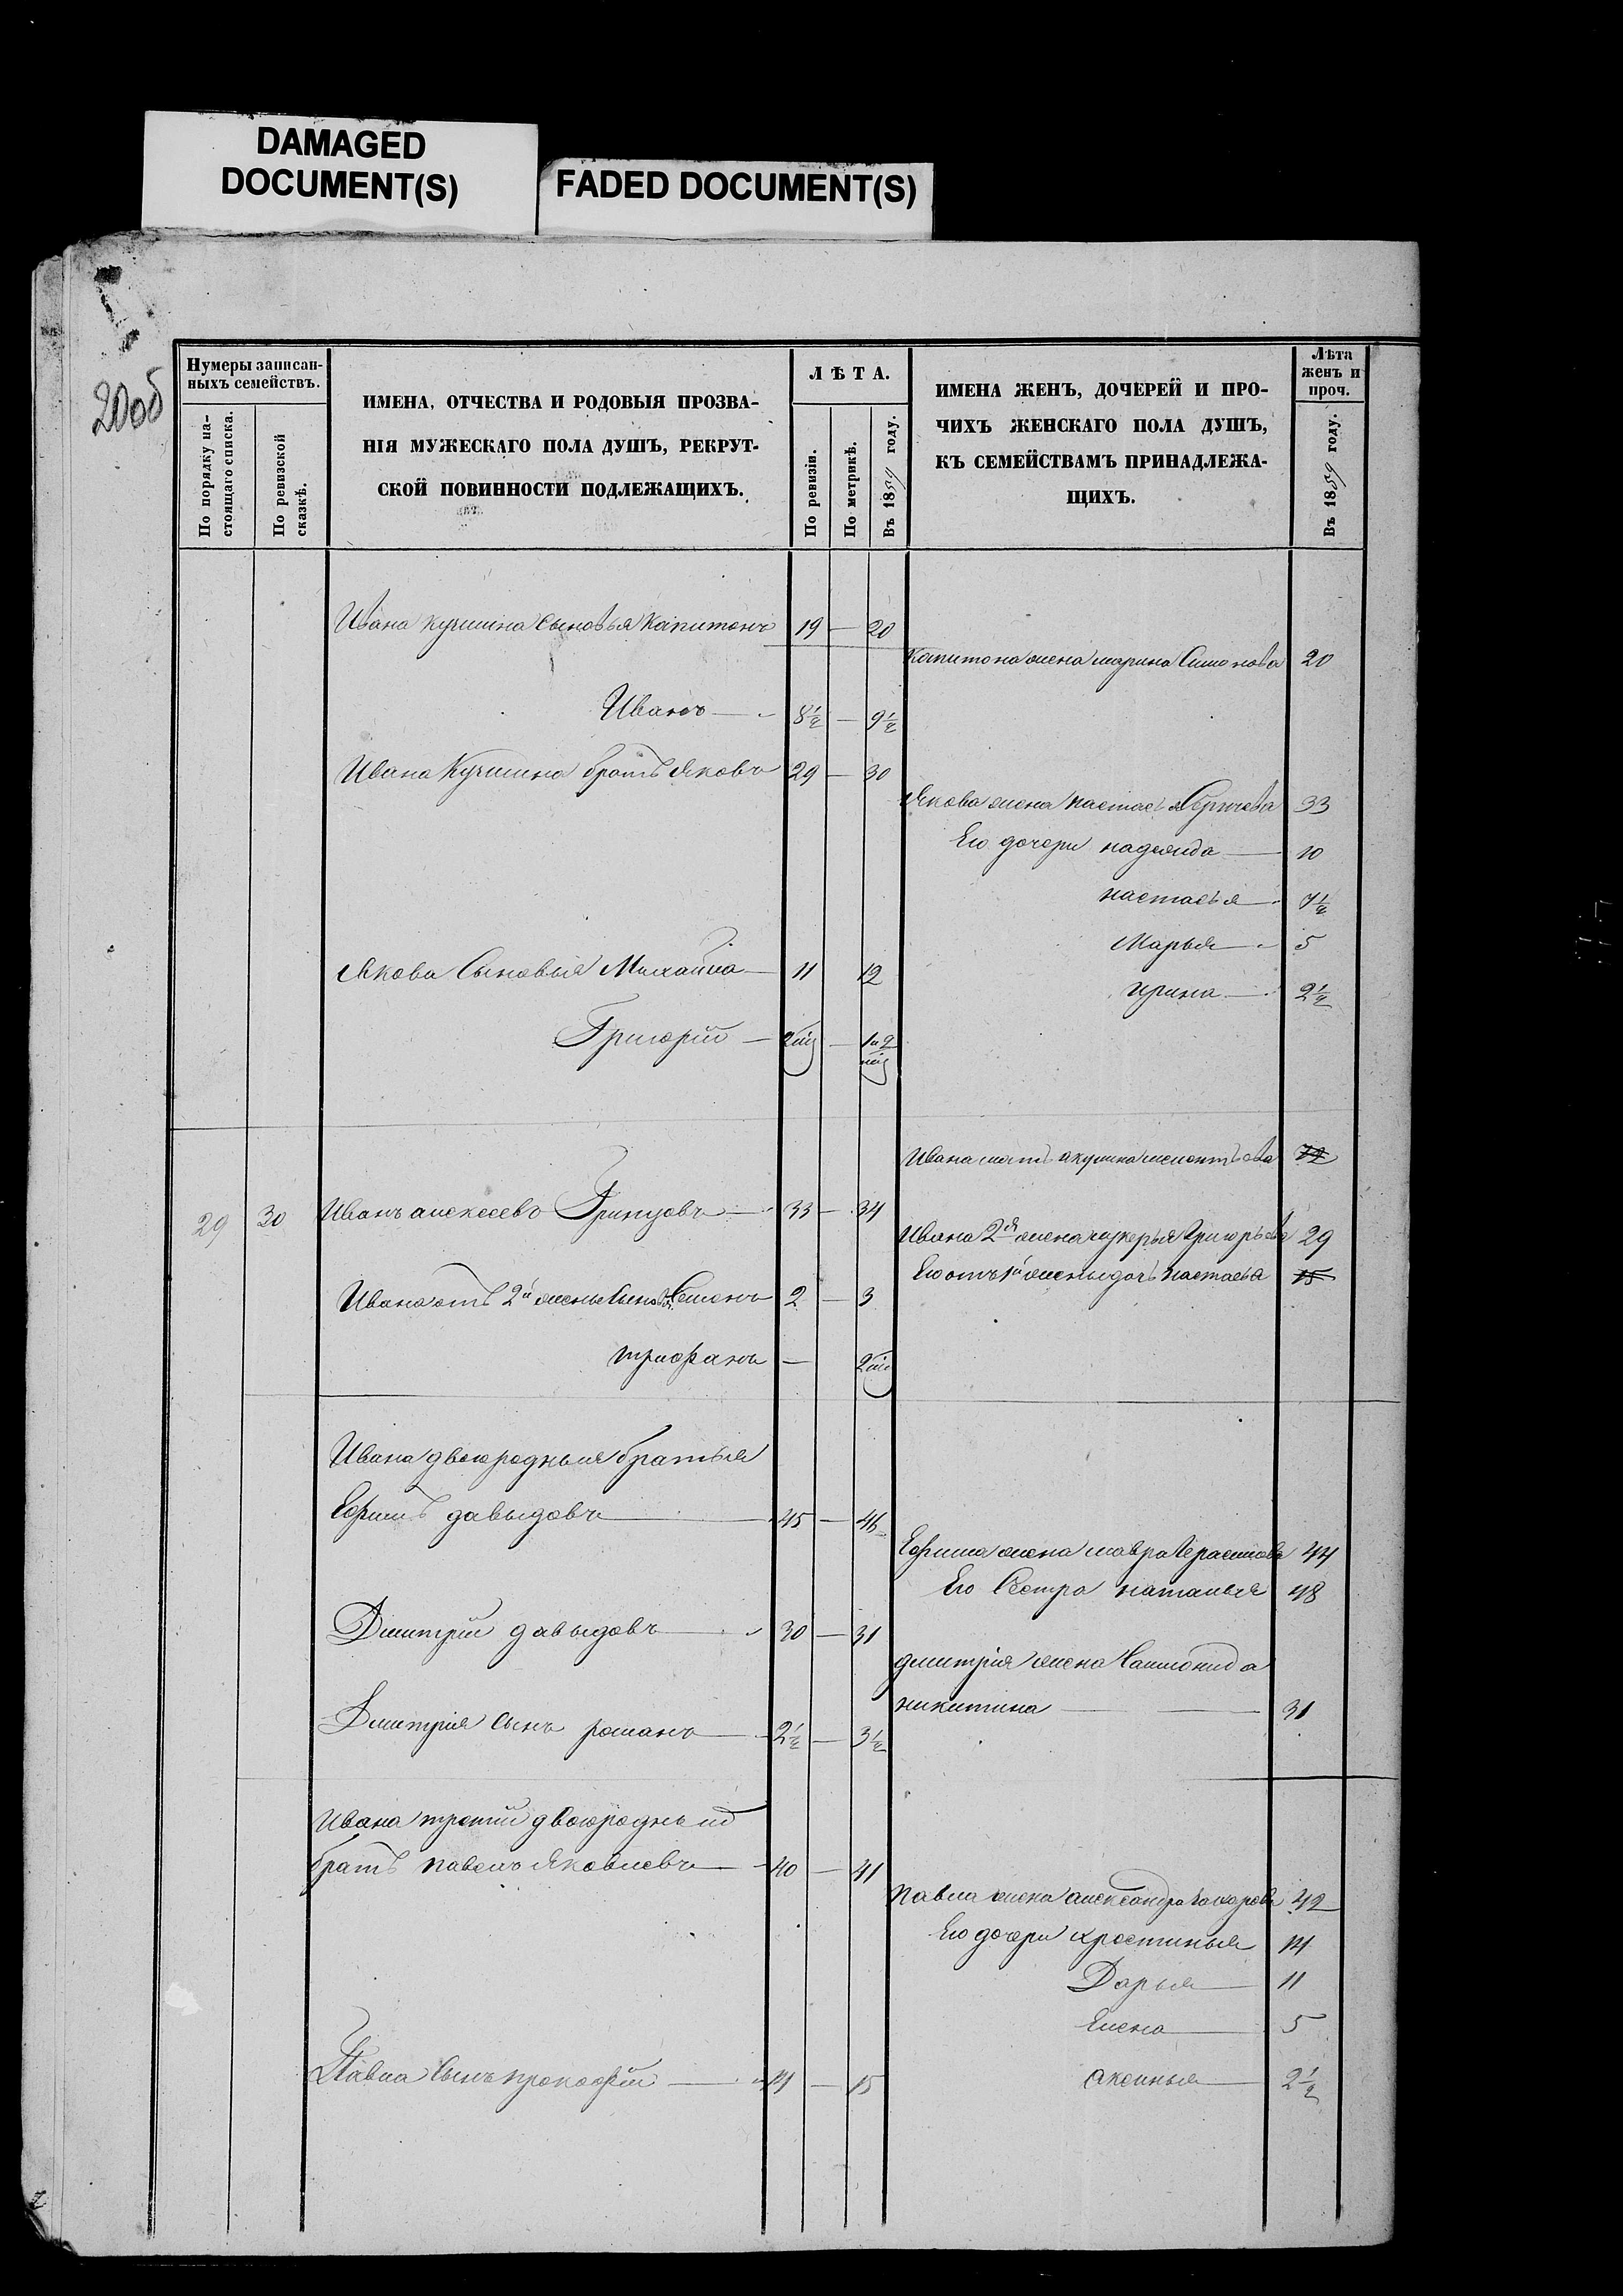 DAMAGED
DOCUMENT(S)
FADED DOCUMENT(S)
20об
Нумеры записан-
ныхъ семействъ.
По порядку на-
стоящаго списка.
По ревизской
сказкѣ.
ИМЕНА, ОТЧЕСТВА И РОДОВЫЯ ПРОЗВА-
НІЯ МУЖЕСКАГО ПОЛА ДУШЪ, РЕКРУТ-
СКОЙ ПОВИННОСТИ ПОДЛЕЖАЩИХЪ.
ЛѢТА.
По ревизіи.
По метрикѣ.
Въ 1859 году.
ИМЕНА ЖЕНЪ, ДОЧЕРЕЙ И ПРО-
ЧИХЪ ЖЕНСКАГО ПОЛА ДУШЪ,
КЪ СЕМЕЙСТВАМЪ ПРИНАДЛЕЖА-
ЩИХЪ.
Лѣта
женъ и
проч.
Въ 1859 году.
Ивана Кузмина Сыновья Капитонъ 19 — 20
Капитона жена марина Симонова 20
Иванъ — 8½ — 9½
Ивана Кузмина братъ Яковъ 29 — 30
Якова жена настасья 33
Его дочери надежда — 10
настасья — 7½
Марья — 5
Якова Сыновья Михайла — 11 12
ирина — 2½
Григорій — 2 — 1 и 2
Ивана мать акулина 72
29 30 Иванъ алексеевъ Гринцовъ — 33 — 34
Ивана 2я жена лукерья Григорьева 29
Его отъ 1й жены дочь настасья 15
Ивана отъ 2й жены Сыновья Семенъ 2 — 3
трифанъ — 2
Ивана двоюродныя братья
Ефимъ давыдовъ — 45 — 46
Ефима жена мавра Герасимова 44
Его Сестра наталья 48
Дмитрій давыдовъ — 30 — 31
дмитрія жена Саломонида
никитина — 31
Дмитрія Сынъ романъ — 2½ — 3½
Ивана третій двоюродный
братъ павелъ Яковлевъ — 40 — 41
Павла жена александра Захарова 42
Его дочери христинья 14
Дарья — 11
Елена — 5
Павла Сынъ прокофій — 14 — 15
аксинья — 2½